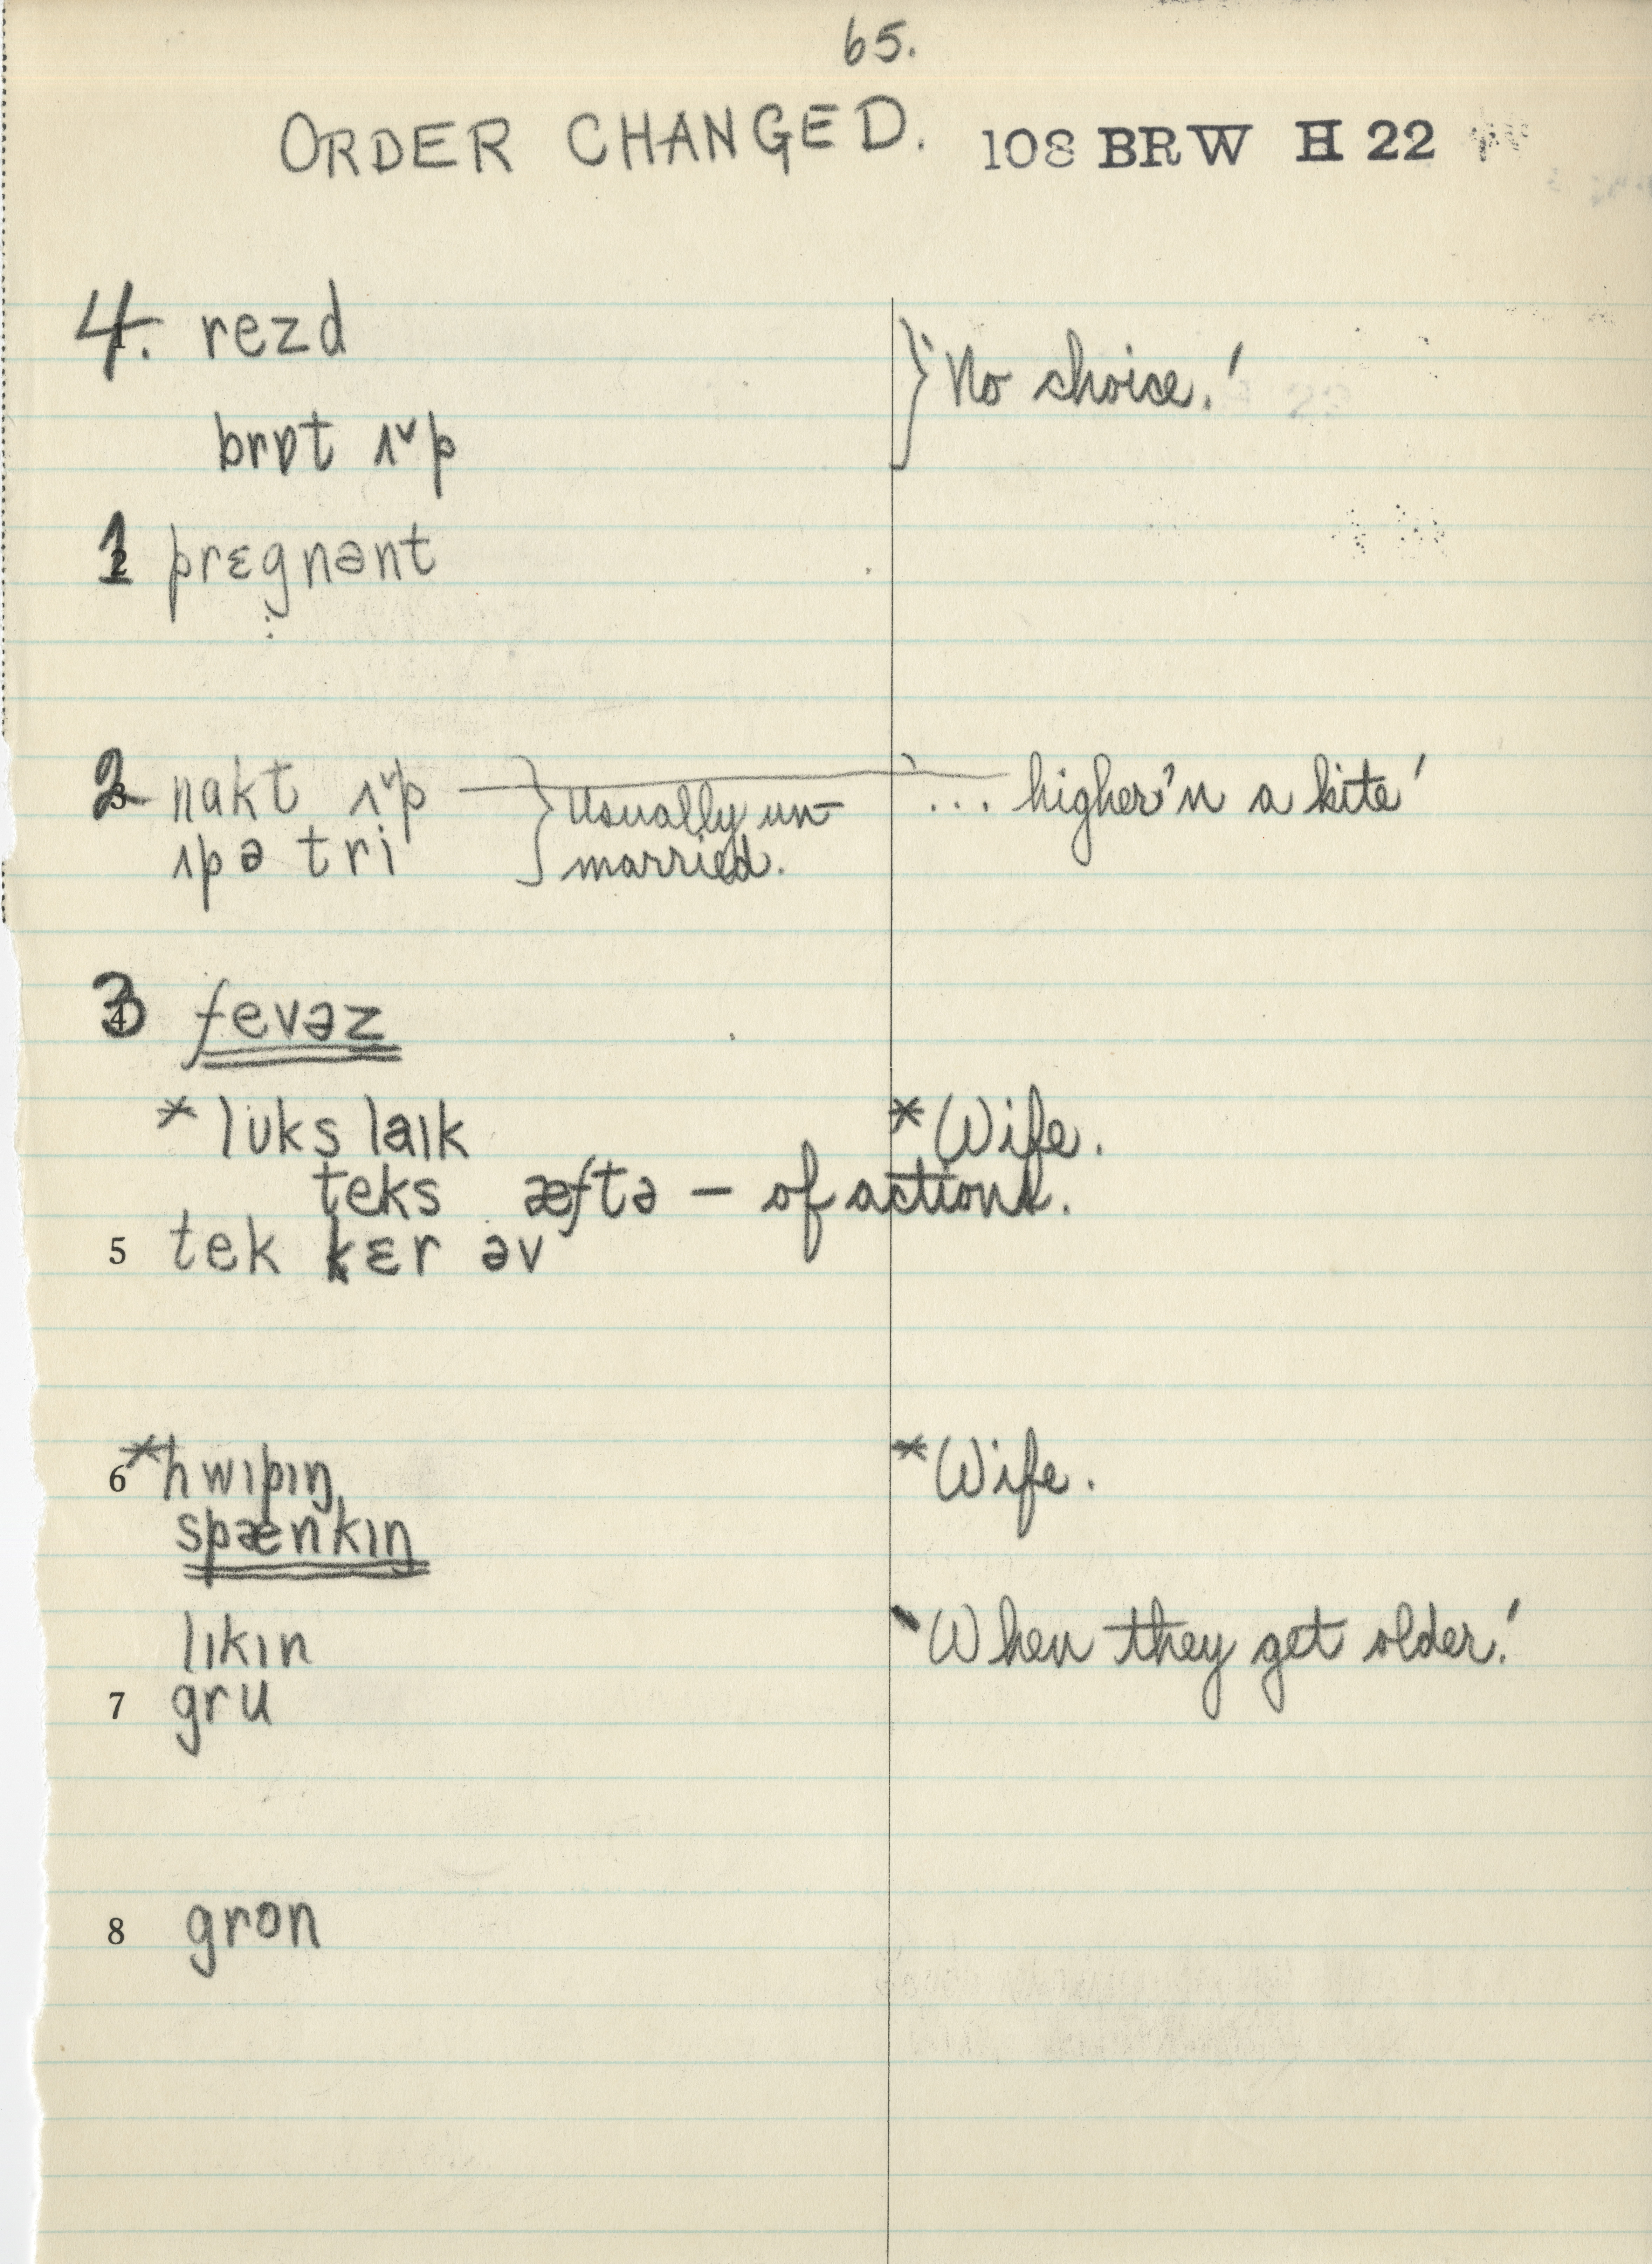 65.
ORDER CHANGED. 108 BRW H 22
4. rezd
} 'No choice.'
brɒt ʌ˅p
1 prɛgnənt
2 nakt ʌ˅p } Usually un- '... higher'n a kite'
ʌp ə tri married.
3 fevəz
* lʊks laɪk * Wife.
teks æftə — of actions.
5 tek kɛr əv
6 * hwɪpɪŋ * Wife.
spænkɪŋ
lɪkɪn 'When they get older.'
7 gru
8 gron